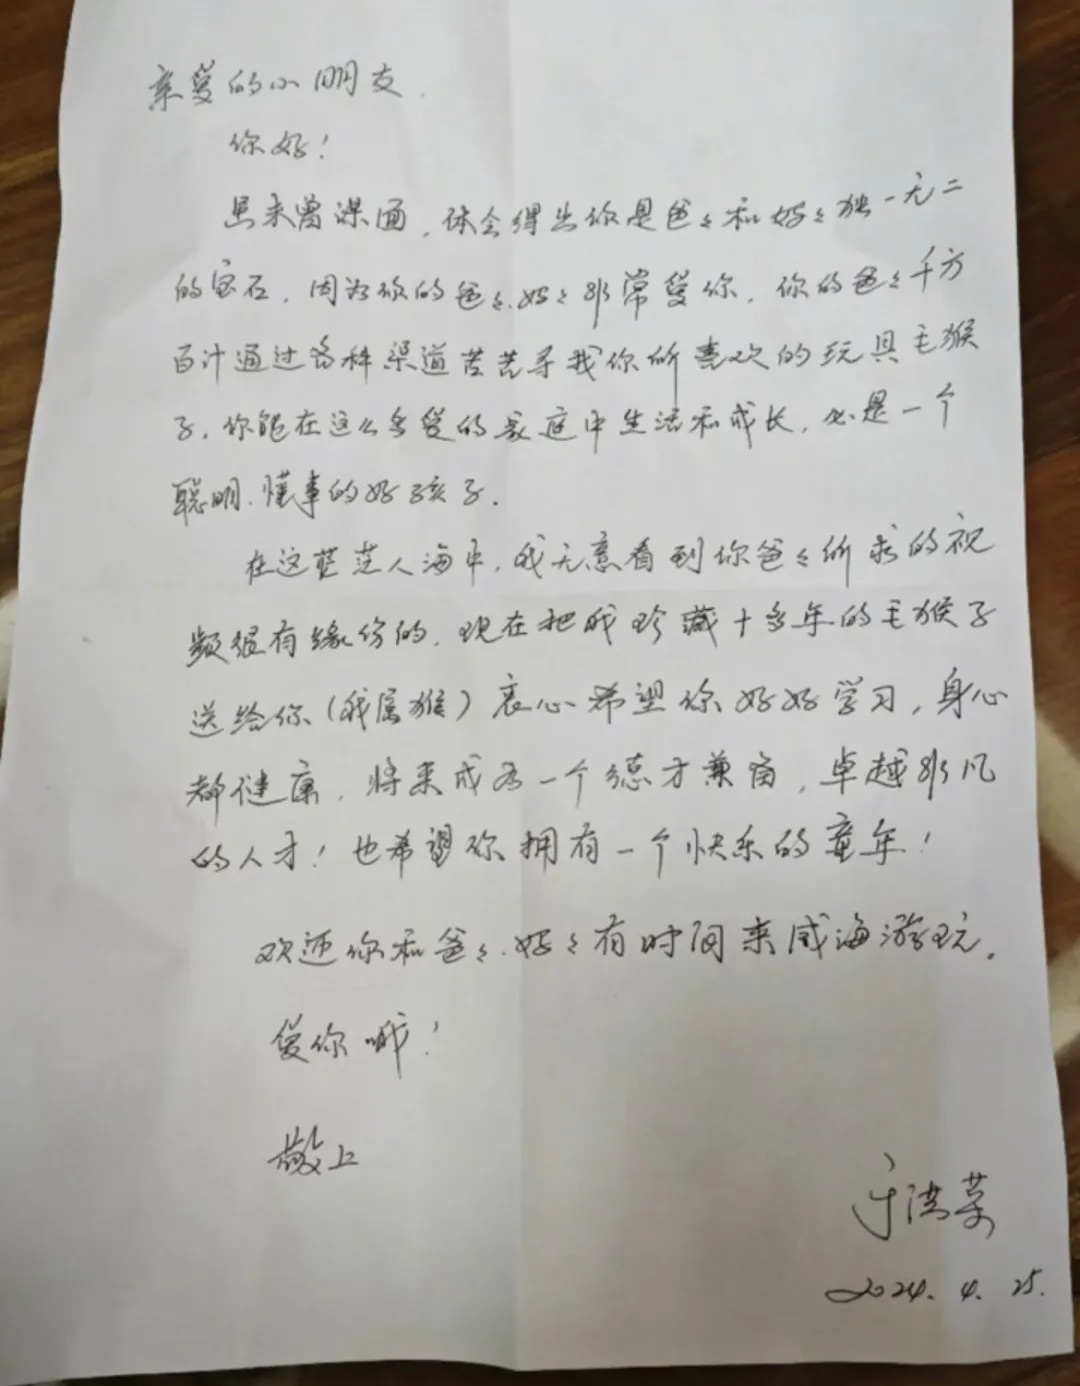 亲爱的小朋友.
你好!
虽未曾谋面,体会得出你是爸々和妈々独一无二
的宝石,因为你的爸々、妈々非常爱你,你的爸々千方
百计通过各种渠道苦苦寻找你所喜欢的玩具毛猴
子,你能在这么多爱的家庭中生活和成长,必是一个
聪明、懂事的好孩子.
在这茫茫人海中,我无意看到你爸々所求的视
频很有缘份的,现在把我珍藏十多年的毛猴子
送给你(我属猴)衷心希望你好好学习,身心
都健康,将来成为一个德才兼备,卓越非凡
的人才!也希望你拥有一个快乐的童年!
欢迎你和爸々、妈々有时间来威海游玩。
爱你哦!
敬上
于洪
2024.4.25.